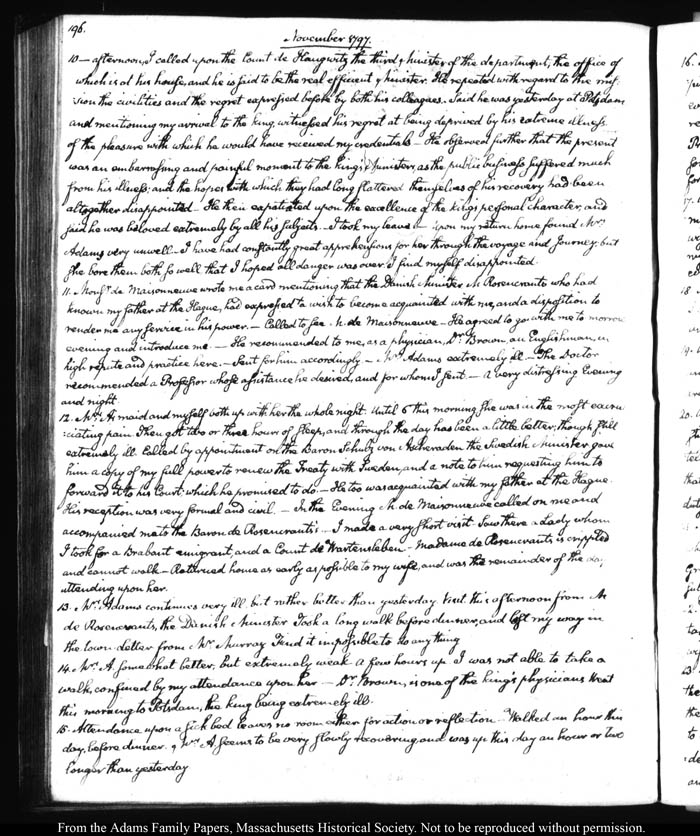 196.
November 1797.
10 — afternoon, I called upon the Count de Haugwitz the third Minister of the department, the office of
which is at his house, and he is said to be the real efficient Minister. He repeated with regard to the mis-
sion the civilities and the regret expressed before by both his colleagues. Said he was yesterday at Potsdam,
and mentioning my arrival to the king, witnessed his regret at being deprived by his extreme illness
of the pleasure with which he would have received my credentials — He observed further that the present
was an embarrassing and painful moment to the king's Ministers, as the public business suffered much
from his illness; and the hopes with which they had long flattered themselves of his recovery had been
altogether disappointed — He then expatiated upon the excellence of the king's personal character, and
said he was beloved extremely by all his subjects — I took my leave — upon my return home found Mrs.
Adams very unwell — I have had constantly great apprehensions for her through the voyage and journey, but
she bore them both so well that I hoped all danger was over. I find myself disappointed.
11. Monsr. de Maisonneuve wrote me a card mentioning that the Danish Minister M. Rosencrantz who had
known my father at the Hague, had expressed a wish to become acquainted with me, and a disposition to
render me any service in his power. — Called to see M. de Maisonneuve — He agreed to go with me to morrow
evening and introduce me. — He recommended to me, as a physician, Dr. Brown, an Englishman, in
high repute and practice here. — Sent for him accordingly — Mrs. Adams extremely ill — The Doctor
recommended a Professor whose assistance he desired, and for whom I sent. — A very distressing Evening
and night.
12. Mrs. A's maid and myself both up with her the whole night. Until 6 this morning she was in the most excru-
ciating pain. Then got two or three hours of sleep, and through the day has been a little better, though still
extremely ill. Called by appointment on the Baron Schultz von Ascheraden the Swedish Minister gave
him a copy of my full power to renew the Treaty with Sweden, and a note to him requesting him to
forward it to his Court which he promised to do. — He too was acquainted with my father at the Hague.
His reception was very formal and civil. — In the Evening M. de Maisonneuve called on me and
accompanied me to the Baron de Rosencrantz's — I made a very short visit. Saw there a Lady whom
I took for a Brabant emigrant, and a Count de Wartensleben. Madame de Rosencrantz is crippled
and cannot walk — Returned home as early as possible to my wife, and was the remainder of the day
attending upon her.
13. Mrs. Adams continues very ill but rather better than yesterday. Visit this afternoon from M
de Rosencrantz, the Danish Minister. Took a long walk before dinner, and lost my way in
the town. Letter from Mr. Murray. Find it impossible to do any thing
14. Mrs. A. somewhat better, but extremely weak. A few hours up. I was not able to take a
walk, confined by my attendance upon her — Dr. Brown, is one of the king's physicians. Went
this morning to Potsdam, the king being extremely ill.
15. Attendance upon a sick bed leaves no room either for action or reflection. Walked an hour this
day, before dinner. Mrs. A seems to be very slowly recovering, and was up this day an hour or two
longer than yesterday
From the Adams Family Papers, Massachusetts Historical Society. Not to be reproduced without permission.